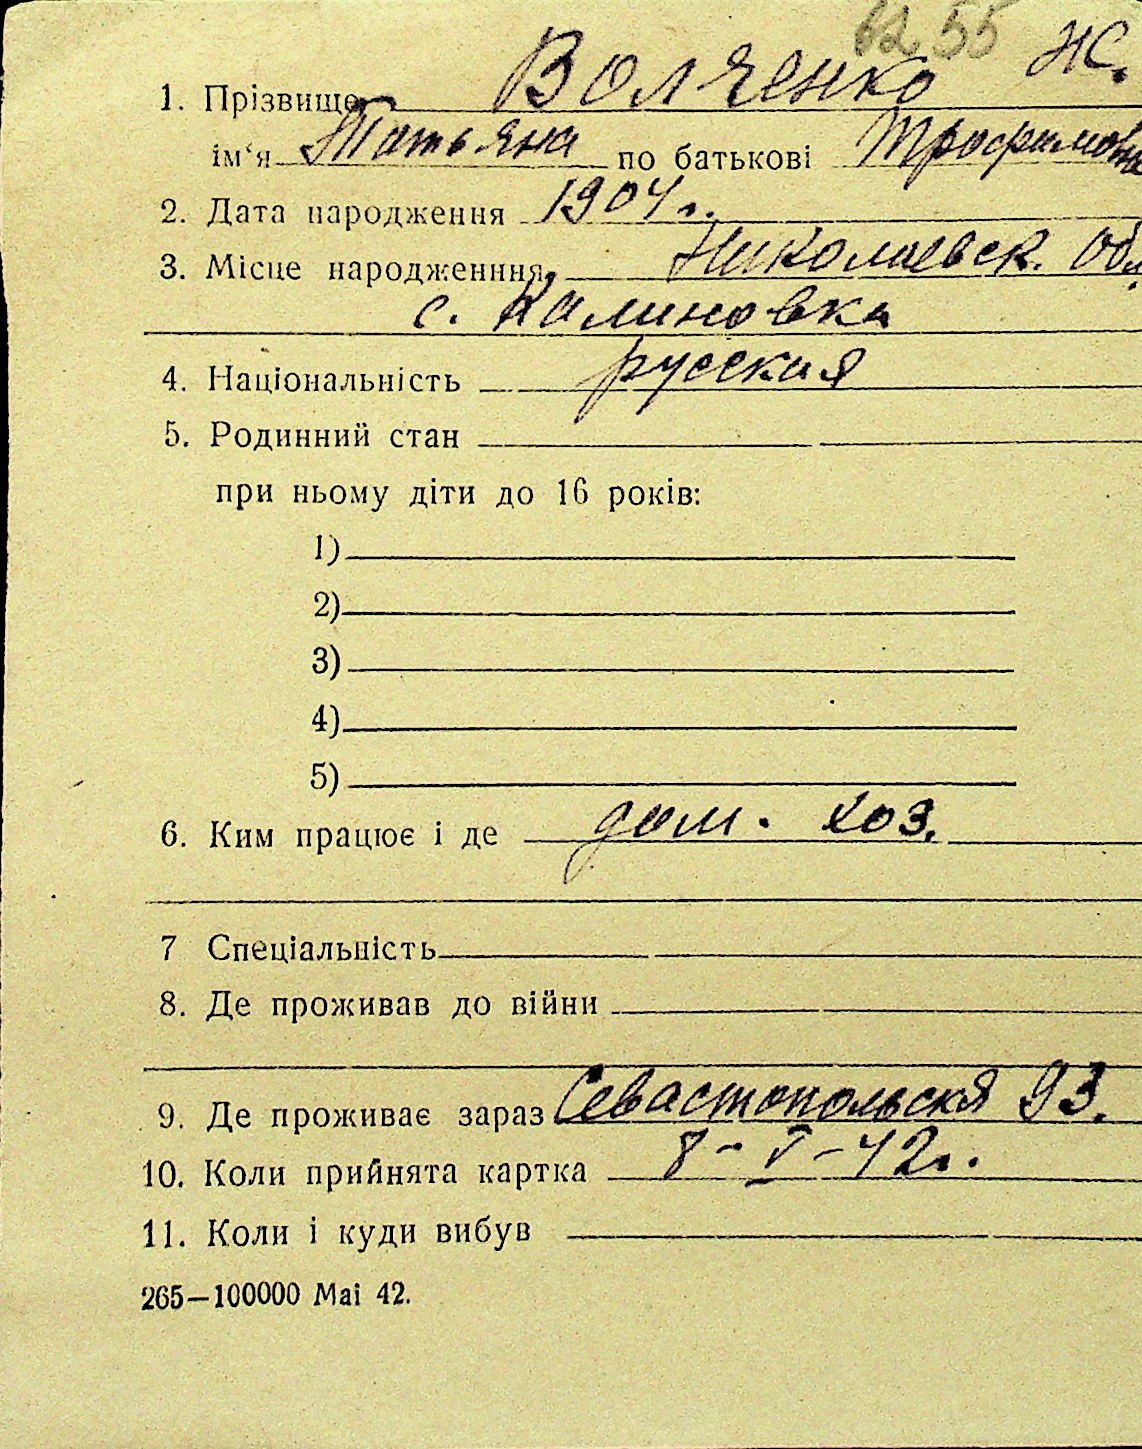 62 55 Ж.
1. Прізвище Волченко
ім'я Татьяна по батькові Трофимовна
2. Дата народження 1904 г.
3. Місце народженння, Николаевск. Обл.
с. Калиновка
4. Національність русская
5. Родинний стан
при ньому діти до 16 років:
1)
2)
3)
4)
5)
6. Ким працює і де дом. хоз.
7 Спеціальність
8. Де проживав до війни
9. Де проживає зараз Севастопольскя 93.
10. Коли прийнята картка 8-V-42г.
11. Коли і куди вибув
265—100000 Маі 42.